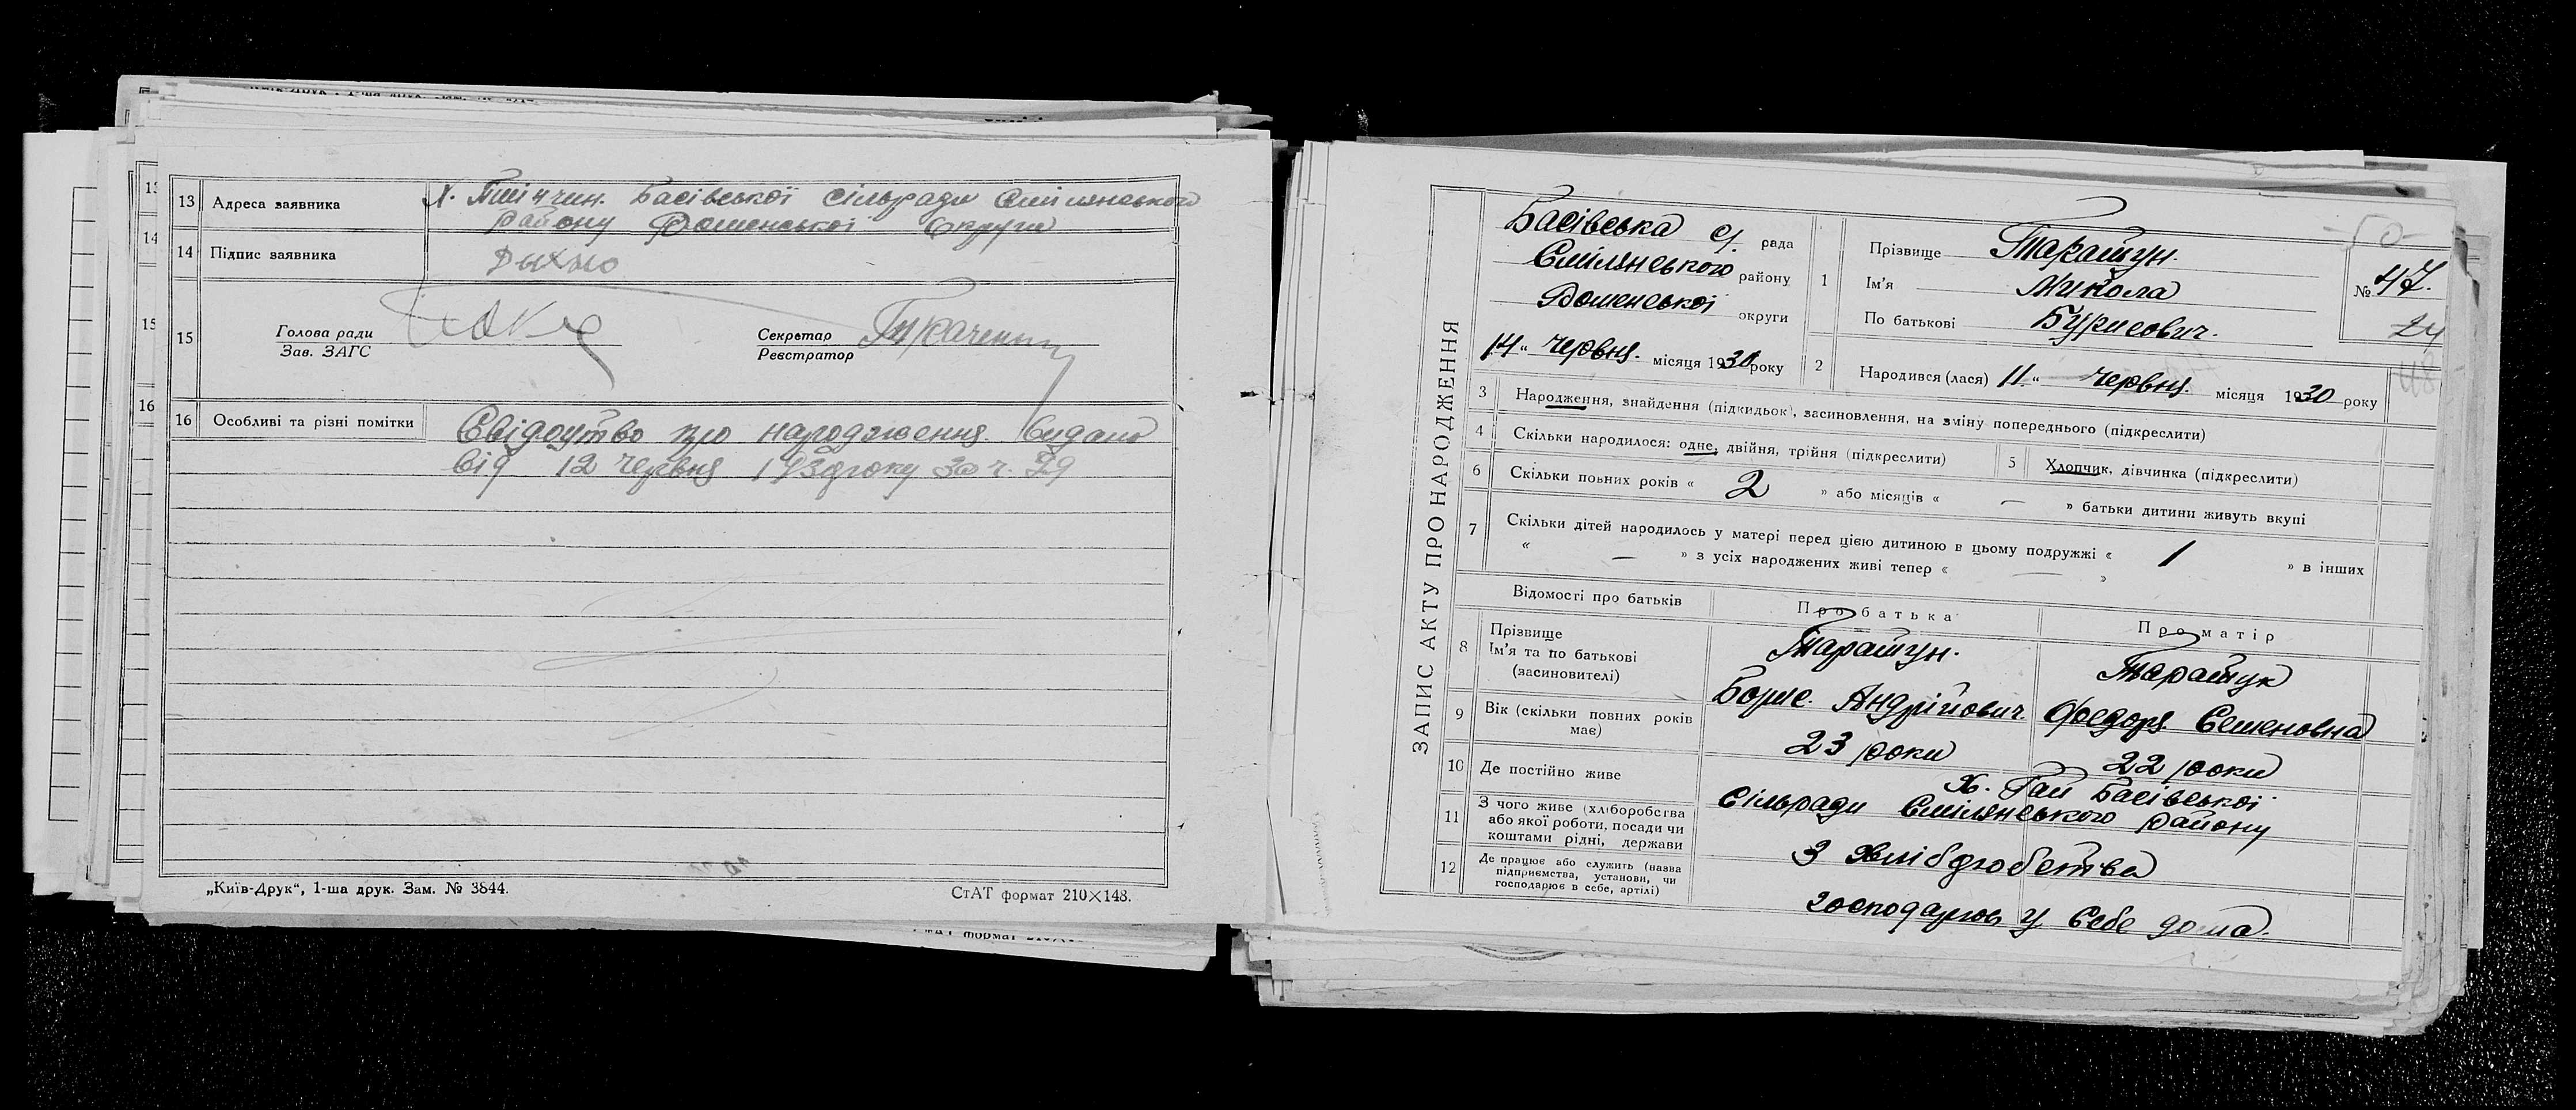 13 Адреса заявника Х. Басівської сільради Смілянського
району Роменської округи
14 Підпис заявника
15 Голова ради
Зав. ЗАГС
Секретар
Реєстратор
Ткаченко
16 Особливі та різні помітки Свідоцтво про народження видано
від 12 червня 1930 року за ч. 29
„Київ-Друк“, 1-ша друк. Зам. № 3844.
СтАТ формат 210×148.
ЗАПИС АКТУ ПРО НАРОДЖЕННЯ
Басівська с. рада
Смілянського району
Роменської округи
14 „ червня. місяця 1930 року
1 Прізвище Таратун.
Ім'я Микола
По батькові Бурисович.
50
№ 47.
24
48
2 Народився (лася) 11 „ червня. місяця 1930 року
3 Народження, знайдення (підкидьок), засиновлення, на зміну попереднього (підкреслити)
4 Скільки народилося: одне, двійня, трійня (підкреслити)
5 Хлопчик, дівчинка (підкреслити)
6 Скільки повних років « 2 » або місяців « — » батьки дитини живуть вкупі
7 Скільки дітей народилось у матері перед цією дитиною в цьому подружжі « 1 » в інших
« — » з усіх народжених живі тепер « — »
Відомості про батьків Про батька Про матір
8 Прізвище
Ім'я та по батькові
(засновителі)
Таратун.
Борис. Андрійович.
Таратун
Федора Семеновна
9 Вік (скільки повних років
має)
23 роки
22 роки
10 Де постійно живе Х. Гай Басівської
сільради Смілянського району
11 З чого живе (хліборобства
або якої роботи, посади чи
коштами рідні, держави
З хліборобства
12 Де працює або служить (назва
підприємства, установи, чи
господарює в себе, артілі)
господарюв у себе дома.